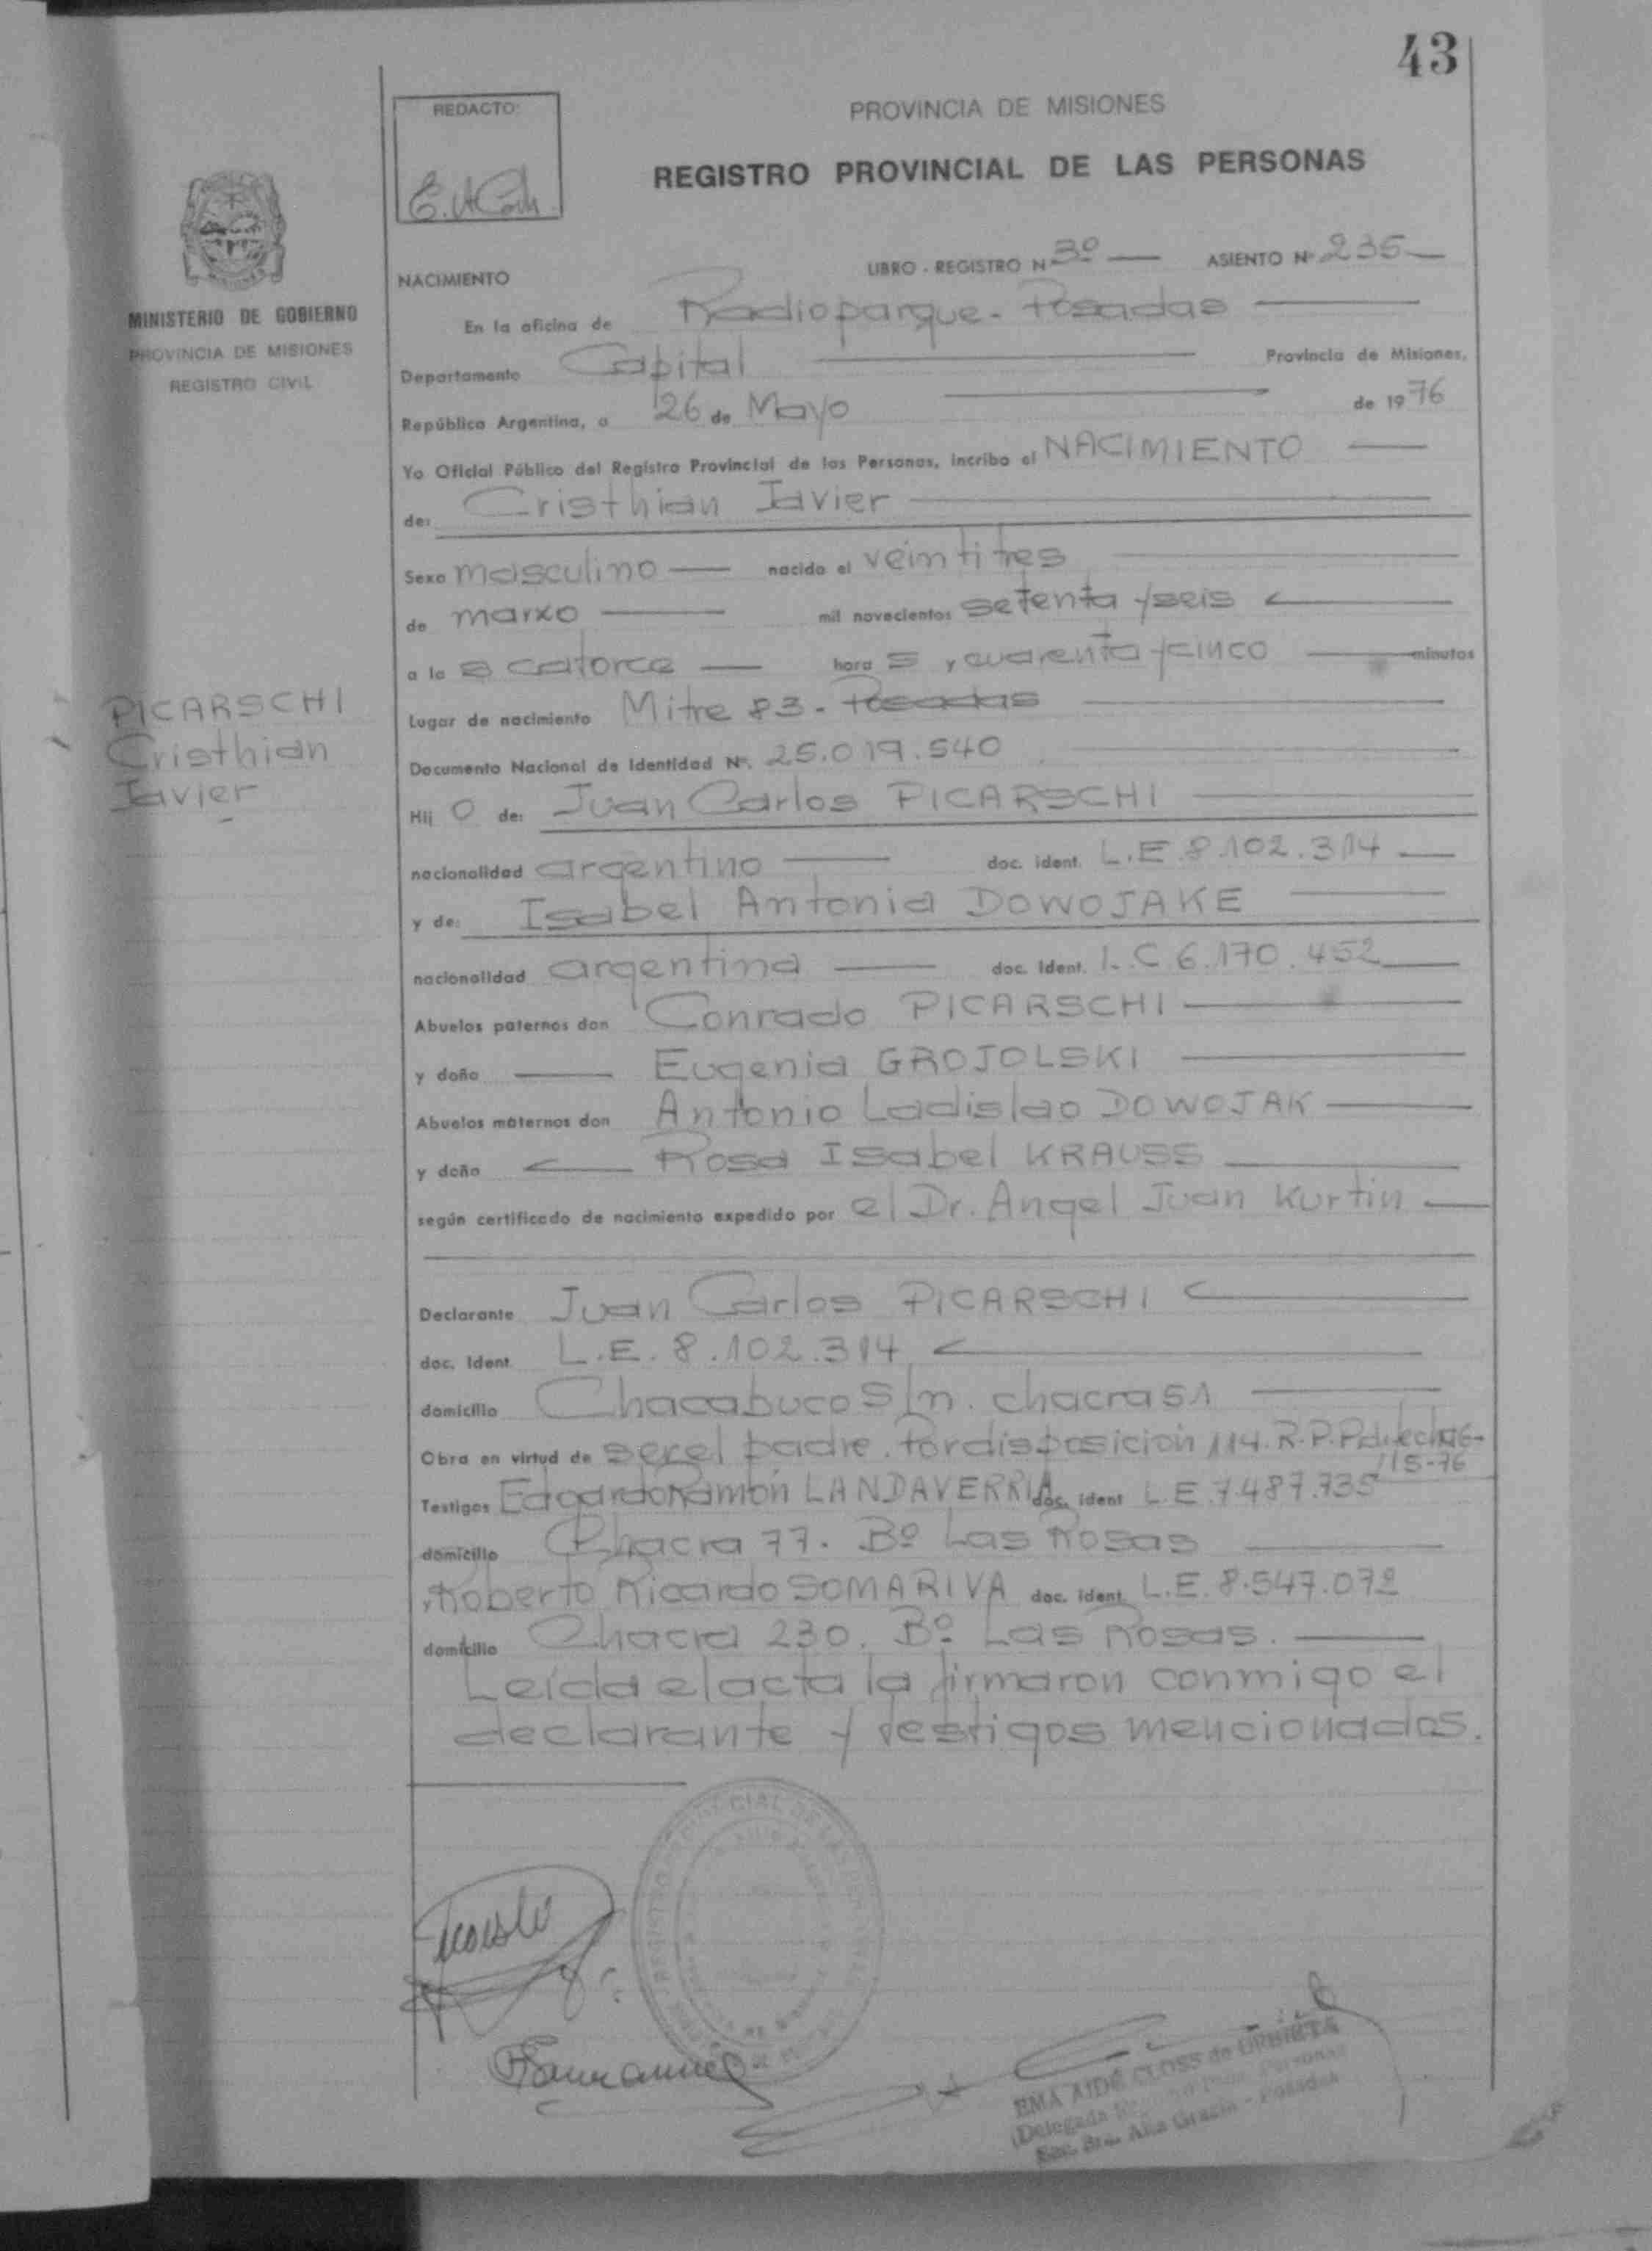 43
REDACTO:
PROVINCIA DE MISIONES
REGISTRO PROVINCIAL DE LAS PERSONAS
MINISTERIO DE GOBIERNO
PROVINCIA DE MISIONES
REGISTRO CIVIL
NACIMIENTO LIBRO - REGISTRO Nº 3º ASIENTO Nº 235
En la oficina de Radioparque - Posadas
Departamento Capital Provincia de Misiones,
República Argentina, a 26 de Mayo de 1976
Yo Oficial Público del Registro Provincial de las Personas, incribo el NACIMIENTO
de: Cristhian Javier
Sexo masculino nacido el veintitres
de marxo mil novecientos setenta y seis
a la s catorce hora s y cuarenta y cinco minutos
Lugar de nacimiento Mitre 83 - Posadas
Documento Nacional de Identidad Nº. 25.019.540
PICARSCHI
Cristhian
Javier
Hij o de: Juan Carlos PICARSCHI
nacionalidad argentino doc. ident. L.E. 8.102.314
y de: Isabel Antonia DOWOJAKE
nacionalidad argentina doc. ident. L.C 6.170.452
Abuelos paternos don Conrado PICARSCHI
y doña Eugenia GROJOLSKI
Abuelos maternos don Antonio Ladislao DOWOJAK
y doña Rosa Isabel KRAUSS
según certificado de nacimiento expedido por el Dr. Angel Juan Kurtin
Declarante Juan Carlos PICARSCHI
doc. ident L.E. 8.102.314
domicilio Chacabuco S/n. chacra 51
Obra en virtud de ser el padre. Por disposicion 114. R.P.P. de fecha 6-
5-76
Testigos Edgardo Ramón LANDAVERRIA doc. ident L.E 7.487.735
domicilio Chacra 77. Bº Las Rosas
Roberto Ricardo SOMARIVA doc. ident. L.E. 8.547.072
domicilio Chacra 230. Bº Las Rosas.
Leída el acta la firmaron conmigo el
declarante y testigos mencionados.
EMA AIDÉ CLOSS de URRIETA
Delegada